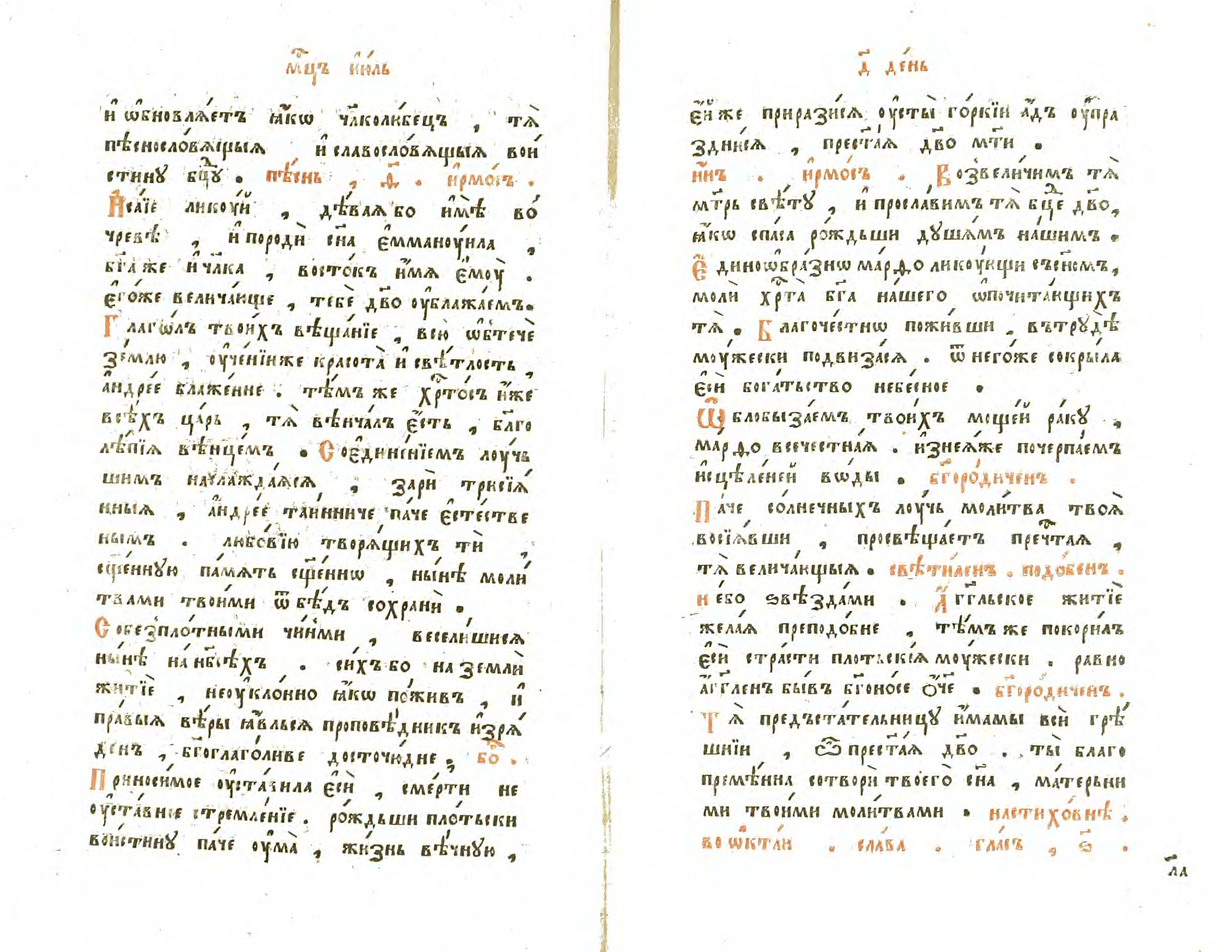 мⷭ҇цъ і҆ю́ль
и҆ ѡ҆бновлѧ́етъ ꙗ҆́кѡ чл҃колю́бецъ , тѧ̀
пѣснословѧ́щыѧ и҆ славосло́вѧщыѧ вои́
стину бцⷣу . пѣ́снь , д҃ . і҆рмо́съ .
И҆са́їе лику́й , дѣ́ваѧ бо и҆мѣ̀ во́
чревѣ , и҆ породѝ сн҃а є҆ммануи́ла ,
бг҃а же и҆ чл҃ка , восто́къ и҆́мѧ є҆мꙋ̀ .
є҆го́же велича́юще , тебѐ дв҃о ᲂу҆блажа́емъ.
Глаго́лъ твои́хъ вѣща́нїе , всю ѡ҆б̾течѐ
зе́млю , ᲂу҆че́нїи же красота̀ и҆ свѣ́тлость ,
а҆ндре́е блаже́нне . тѣ́мъ же хрⷭ҇то́съ и҆́же
всѣ́хъ ца́рь , тѧ̀ вѣнча́лъ є҆́сть , бл҃го
лѣ́пїѧ вѣнце́мъ . Соедине́нїемъ лᲂу́чь
шимъ наслажда́ѧсѧ , зарѝ трисїѧ́
нныѧ , а҆ндре́е таи́нниче па́че є҆сте́стве
нымъ . любо́вїю творѧ́щихъ тѝ ,
сщ҃е́нную па́мѧть сщ҃е́ннѡ , ны́нѣ моли́
твами твои́ми ѿ бѣ́дъ сохранѝ .
Собезпло́тными чи́нми , весели́шисѧ
ны́нѣ на нб҃сѣ́хъ . си́хъ бо на землѝ
житїѐ , неуклонно ꙗ҆́кѡ пожи́въ , и҆
пра́выѧ вѣ́ры ꙗ҆ви́лсѧ проповѣ́дникъ и҆зрѧ́
денъ , бг҃оглаго́ливе досточю́дне , бо́ .
Приноси́мое ᲂу҆ста́вила є҆сѝ , сме́рти не
ᲂу҆ста́вное стремле́нїе . ро́ждьши пло́тьски
вои́стину па́че ᲂу҆ма̀ , жи́знь вѣ́чную ,
д҃ де́нь
є҆́йже приразисѧ ᲂу҆сты̀ го́ркїи а҆́дъ ᲂу҆пра
здни́сѧ , прест҃а́ѧ дв҃о мт҃и .
и҆н́ъ . і҆рмо́съ . Возвели́чимъ тѧ̀
мт҃рь свѣ́ту , и҆ просла́вимъ тѧ̀ бцⷣе дв҃о,
ꙗ҆́кѡ сп҃са ро́ждьши душа́мъ на́шимъ .
Є҆диноѡ́бразнѡ ма́рѳо лику́ющи съ сн҃омъ,
молѝ хрⷭ҇та̀ бг҃а на́шего ѡ҆ почита́ющихъ
тѧ̀ . Благоче́стнѡ пожи́вши , въ трудѣ̀
мꙋ́жески подвиза́сѧ . ѿ него́же сокры́ла
є҆сѝ бога́тьство небе́сное .
Ѡ҆блобыза́емъ твои́хъ моще́й ра́ку ,
ма́рѳо всече́стнаѧ . и҆знеѧ́же почерпа́емъ
и҆сцѣле́ней во́ды . бг҃оро́диченъ .
Па́че со́лнечныхъ лᲂу́чь моли́тва твоѧ̀
восїѧ́вши , просвѣща́етъ преч҃таѧ ,
тѧ̀ велича́ющыѧ . свѣти́ленъ . подо́бенъ .
Не́бо ѕвѣзда́ми . А҆́гг҃льское житїѐ
жела́ѧ преподо́бне , тѣ́мъ же покори́лъ
є҆сѝ стра́сти пло́тьскїѧ мꙋ́жески . равно
а҆́гг҃ленъ бы́въ бг҃оно́се ѻ҆́ч҃е . бг҃оро́диченъ .
Тѧ̀ предъста́тельницу и҆́мамы всѝ грѣ́
шнїи , ѽ прест҃а́ѧ дв҃о . ты̀ благо
премѣ́нна сотворѝ твоего̀ сн҃а , ма́терьни
ми твои́ми моли́твами . на стихо́внѣ .
во ѡ҆кта́и . сла́ва . гла́съ , ѕ҃ .
л҃а